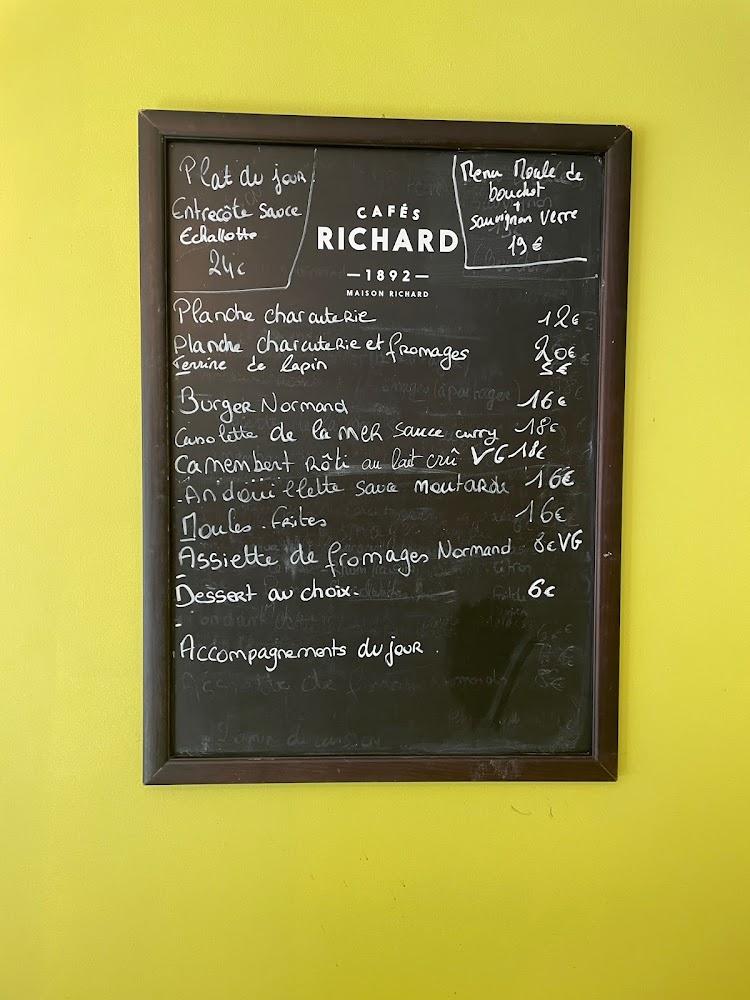 Plat du jour
Entrecôte Sauce
Echallotte
24€
CAFÉS
RICHARD
—1892—
MAISON RICHARD
Menu Moule de
bouchot
+
sauvignon verre
19€
Planche charcuterie 12€
Planche charcuterie et fromages 20€
Terrine de lapin 5€
Burger Normand 16€
Cassolette de la mer sauce curry 18€
Camembert rôti au lait crû VG 18€
Andouillette sauce moutarde 16€
Moules-frites 16€
Assiette de fromages Normand 8€ VG
Dessert au choix. 6€
Accompagnements du jour.